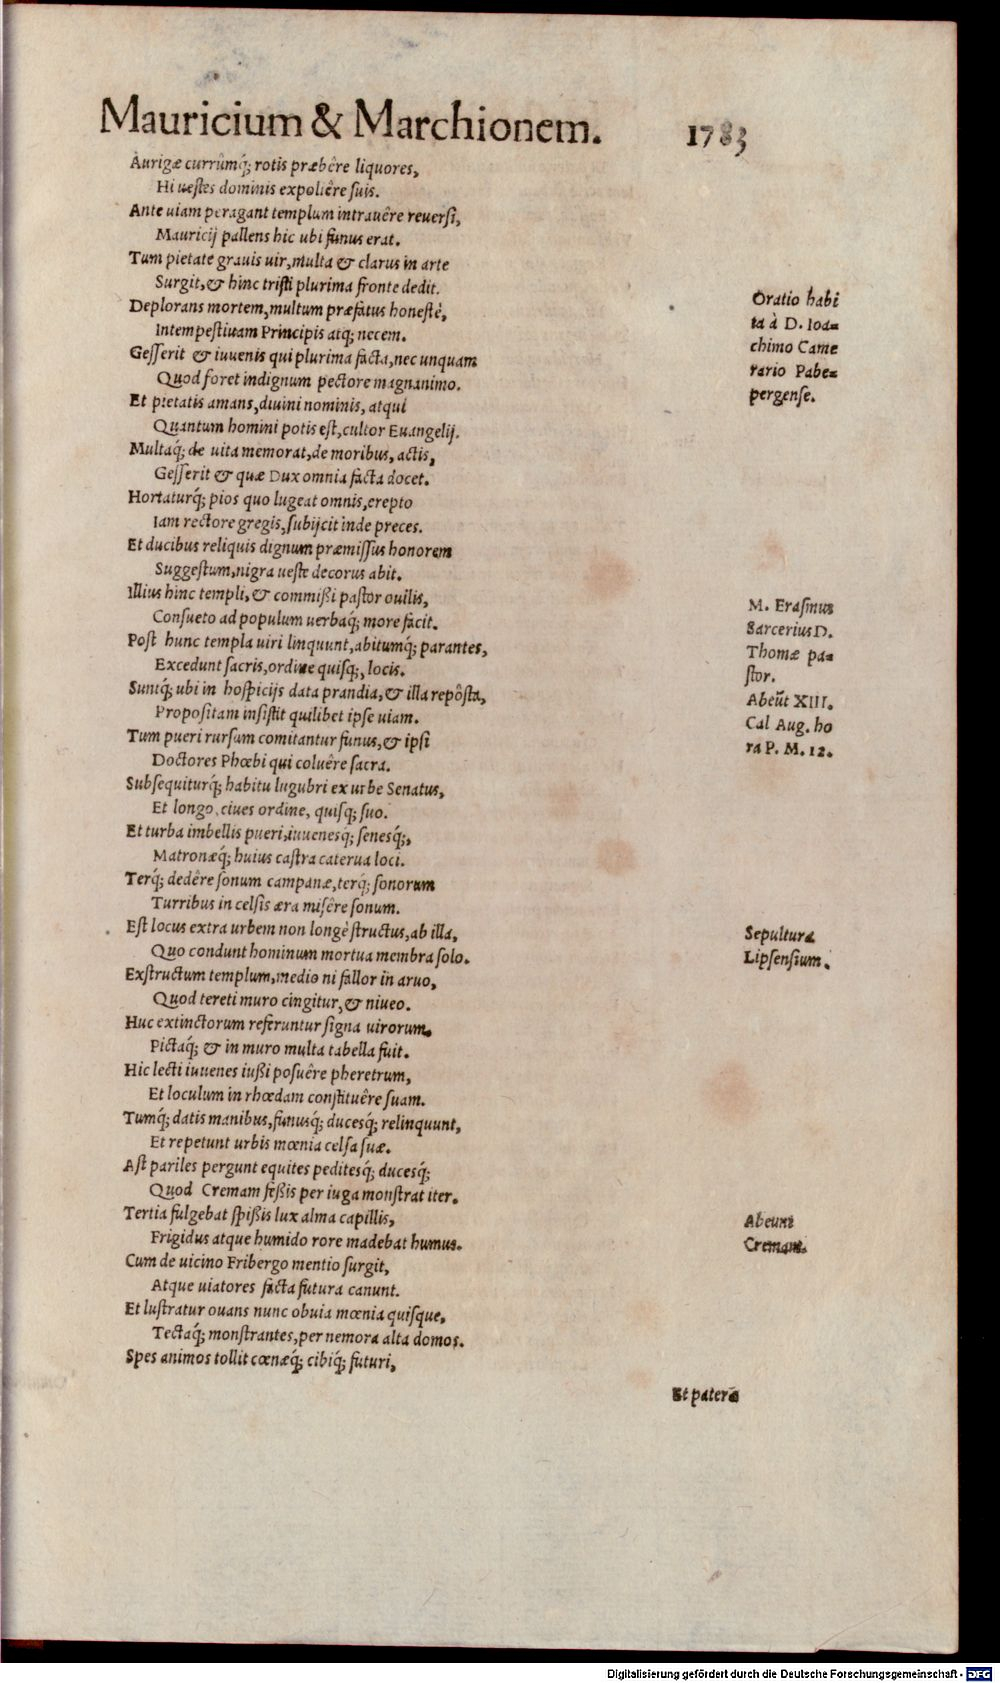 Mauricium & Marchionem. 1783
Aurigæ currûmq́; rotis præbêre liquores,
Hi uestes dominis expoliêre suis.
Ante uiam peragant templum intrauêre reuersi,
Mauricij pallens hic ubi funus erat.
Tum pietate grauis uir, multa & clarus in arte
Surgit, & hinc tristi plurima fronte dedit.
Deplorans mortem, multum præfatus honestè,
Intempestiuam Principis atq; necem.
Gesserit & iuuenis qui plurima facta, nec unquam
Quod foret indignum pectore magnanimo.
Et pietatis amans, diuini nominis, atqui
Quantum homini potis est, cultor Euangelij.
Multaq́; de uita memorat, de moribus, actis,
Gesserit & quæ Dux omnia facta docet.
Hortaturq́; pios quo lugeat omnis, erepto
Iam rectore gregis, subijcit inde preces.
Et ducibus reliquis dignum præmissus honorem
Suggestum, nigra ueste decorus abit.
Illius hinc templi, & commißi pastor ouilis,
Consueto ad populum uerbaq́; more facit.
Post hunc templa uiri linquunt, abitumq́; parantes,
Excedunt sacris, ordine quisq;, locis.
Suntq́; ubi in hospicijs data prandia, & illa repôsta,
Propositam insistit quilibet ipse uiam.
Tum pueri rursum comitantur funus, & ipsi
Doctores Phœbi qui coluêre sacra.
Subsequiturq́; habitu lugubri ex urbe Senatus,
Et longo, ciues ordine, quisq; suo.
Et turba imbellis pueri, iuuenesq́; senesq́;,
Matronæq́; huius castra caterua loci.
Terq́; dedêre sonum campanæ, terq́; sonorum
Turribus in celsis æra misêre sonum.
Est locus extra urbem non longè structus, ab illa,
Quo condunt hominum mortua membra solo.
Exstructum templum, medio ni fallor in aruo,
Quod tereti muro cingitur, & niueo.
Huc extinctorum referuntur signa uirorum,
Pictaq́; & in muro multa tabella fuit.
Hic lecti iuuenes iußi posuêre pheretrum,
Et loculum in rhœdam constituêre suam.
Tumq́; datis manibus, funusq́; ducesq́; relinquunt,
Et repetunt urbis mœnia celsa suæ.
Ast pariles pergunt equites peditesq́; ducesq́;
Quod Cremam feßis per iuga monstrat iter.
Tertia fulgebat spißis lux alma capillis,
Frigidus atque humido rore madebat humus.
Cum de uicino Fribergo mentio surgit,
Atque uiatores facta futura canunt.
Et lustratur ouans nunc obuia mœnia quisque,
Tectaq́; monstrantes, per nemora alta domos.
Spes animos tollit cœnæq́; cibiq́; futuri,
Et pateræ
Oratio habi
ta à D. Ioa=
chimo Came
rario Pabe=
pergense.
M. Erasmus
Sarcerius D.
Thomæ pa=
stor.
Abeūt XIII.
Cal Aug. ho
ra P. M. 12.
Sepultura
Lipsensium.
Abeunt
Cremam.
Digitalisierung gefördert durch die Deutsche Forschungsgemeinschaft - DFG